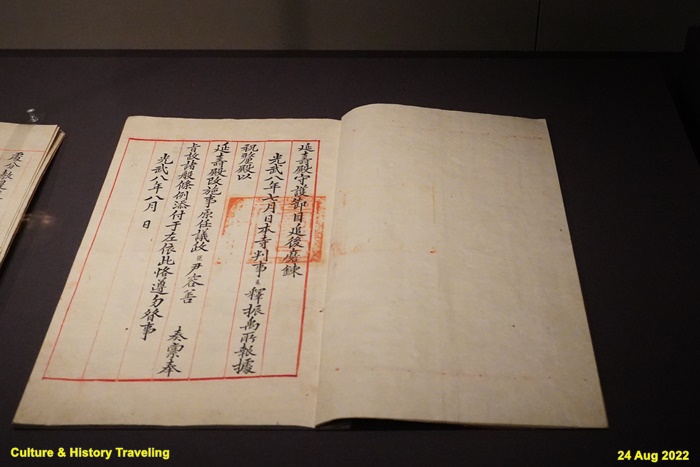 延壽殿守護節目追後磨鍊
光武八年七月日本寺判事臣釋振禹所報據
祝釐殿以
延壽殿改施事原任議政臣尹容善 奏稟奉
旨敎諸般條例添付于左依此恪遵勿替事
光武八年八月 日
Culture & History Traveling
24 Aug 2022